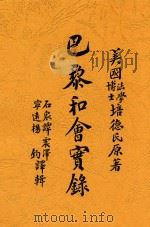 美國法學博士培德民原著
巴黎和會實錄
石家譚震澤
寧遠楊鈞譯輯